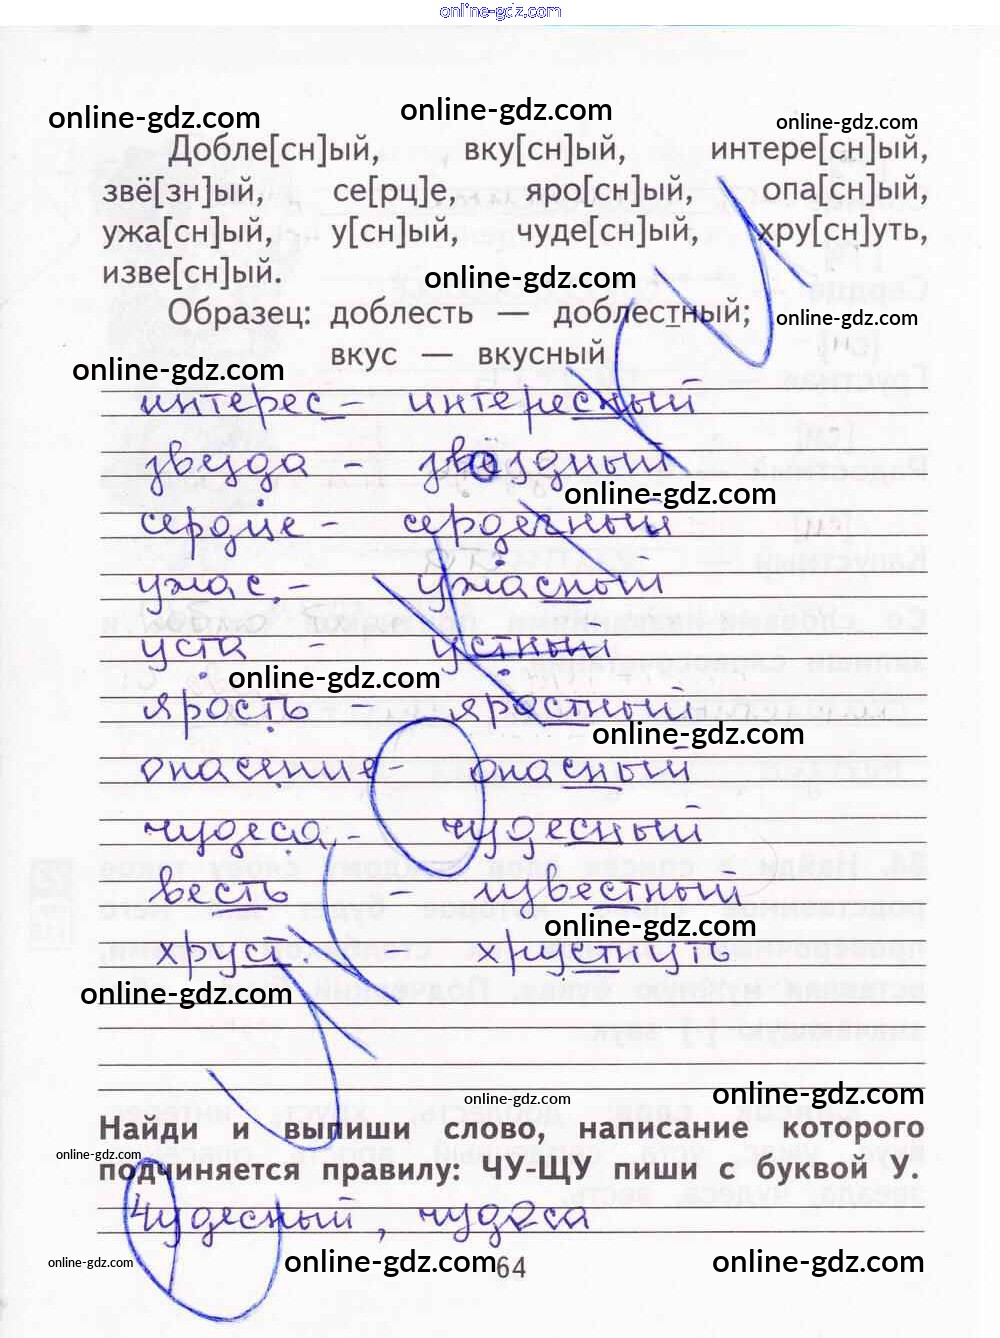 online-gdz.com
online-gdz.com online-gdz.com online-gdz.com
Добле[сн]ый, вку[сн]ый, интере[сн]ый,
звё[зн]ый, се[рц]е, яро[сн]ый, опа[сн]ый,
ужа[сн]ый, у[сн]ый, чуде[сн]ый, хру[сн]уть,
изве[сн]ый.
online-gdz.com
Образец: доблесть — доблестный;
online-gdz.com
вкус — вкусный
online-gdz.com
интерес - интересный
звезда - звёздный
online-gdz.com
сердце - сердечный
ужас - ужасный
уста - устный
online-gdz.com
ярость - яростный
online-gdz.com
опасение - опасный
чудеса - чудесный
весть - известный
online-gdz.com
хруст - хрустнуть
online-gdz.com
online-gdz.com online-gdz.com
Найди и выпиши слово, написание которого
online-gdz.com
подчиняется правилу: ЧУ-ЩУ пиши с буквой У.
Чудесный, чудеса
online-gdz.com online-gdz.com 64 online-gdz.com